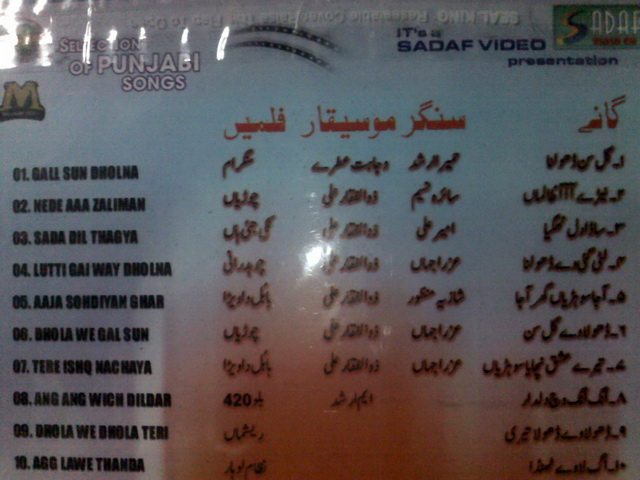 SEAL KING Resealable Cover Raise The Flap to Open
SELECTION OF PUNJABI SONGS
IT's a SADAF VIDEO presentation
SADAF
M
گانے سنگر موسیقار فلمیں
01. GALL SUN DHOLNA نگرام وجاہت عطرے حمیرا ارشد ۱۔ گل سن ڈھولنا
02. NEDE AAA ZALIMAN چوڑیاں ذوالفقار علی سائرہ نسیم ۲۔ نیڑے آآآ ظالماں
03. SADA DIL THAGYA ذوالفقار علی امیر علی ۳۔ ساڈا دل ٹھگیا
04. LUTTI GAI WAY DHOLNA چوہدرانی ذوالفقار علی عذرا جہاں ۴۔ لٹی گئی وے ڈھولنا
05. AAJA SOHDIYAN GHAR بابل دا ویڑا ذوالفقار علی شازیہ منظور ۵۔ آجا سوہڑیاں گھر آجا
06. DHOLA WE GAL SUN چوڑیاں ذوالفقار علی عذرا جہاں ۶۔ ڈھولا وے گل سن
07. TERE ISHQ NACHAYA بابل دا ویڑا ذوالفقار علی عذرا جہاں ۷۔ تیرے عشق نچایا سوہڑیاں
08. ANG ANG WICH DILDAR بلو 420 ایم ارشد ۸۔ انگ انگ وچ دلدار
09. DHOLA WE DHOLA TERI ریشماں ۹۔ ڈھولا وے ڈھولا تیری
10. AGG LAWE THANDA نظام لوہار ۱۰۔ اگ لاوے ٹھنڈا